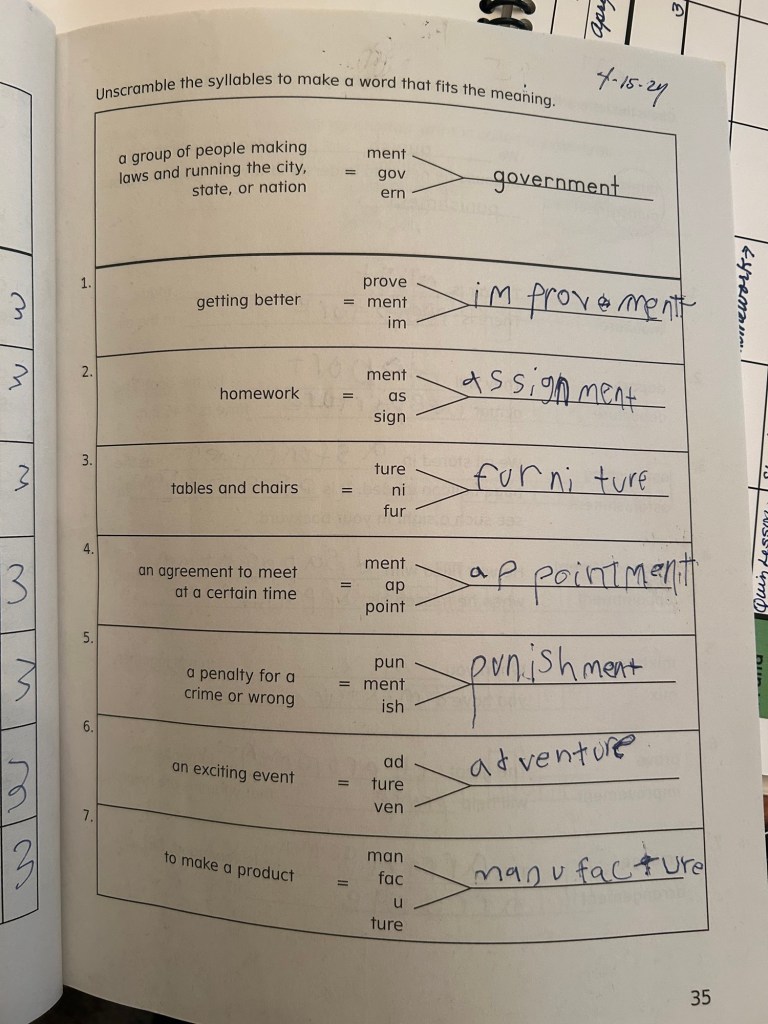 Unscramble the syllables to make a word that fits the meaning.
4-15-24
a group of people making
laws and running the city,
state, or nation
=
ment
gov
ern
government
1.
getting better
=
prove
ment
im
improvement
2.
homework
=
ment
as
sign
assignment
3.
tables and chairs
=
ture
ni
fur
furniture
4.
an agreement to meet
at a certain time
=
ment
ap
point
appointment
5.
a penalty for a
crime or wrong
=
pun
ment
ish
punishment
6.
an exciting event
=
ad
ture
ven
adventure
7.
to make a product
=
man
fac
u
ture
manufacture
35
3
3
3
3
3
3
3